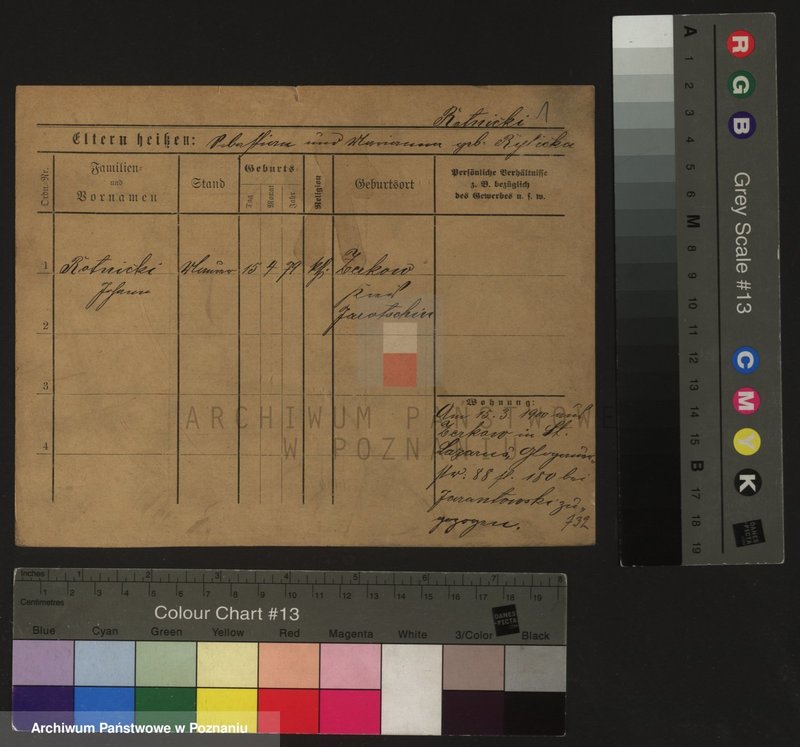 Rotnicki 1
Eltern heißen: Sebastian und Marianna geb. Rybicka
Ordn.-Nr.
Familien- und Vornamen
Stand
Geburts-
Tag
Monat
Jahr
Religion
Geburtsort
Persönliche Verhältnisse
z. B. bezüglich
des Gewerbes u. s. w.
1 Rotnicki Maurer 15 4 79 kth. Zerkow
Johann
Jarotschin
2
3
4
Wohnung:
Am 15. 3. 1900 aus
Zerkow in St.
Lazarus, Glogauer
str. 88 bei
Jarantowski zu-
gezogen. 732
ARCHIWUM PAŃSTWOWE
W POZNANIU
A 1 2 3 4 5 6 M 8 9 10 11 12 13 14 15 B 17 18 19
R G B
Grey Scale #13
C M Y K
DANES
PICTA
Inches 1 2 3 4 5 6 7 8
Centimetres 1 2 3 4 5 6 7 8 9 10 11 12 13 14 15 16 17 18 19
Colour Chart #13
DANES
-PICTA
Blue Cyan Green Yellow Red Magenta White 3/Color Black
Archiwum Państwowe w Poznaniu